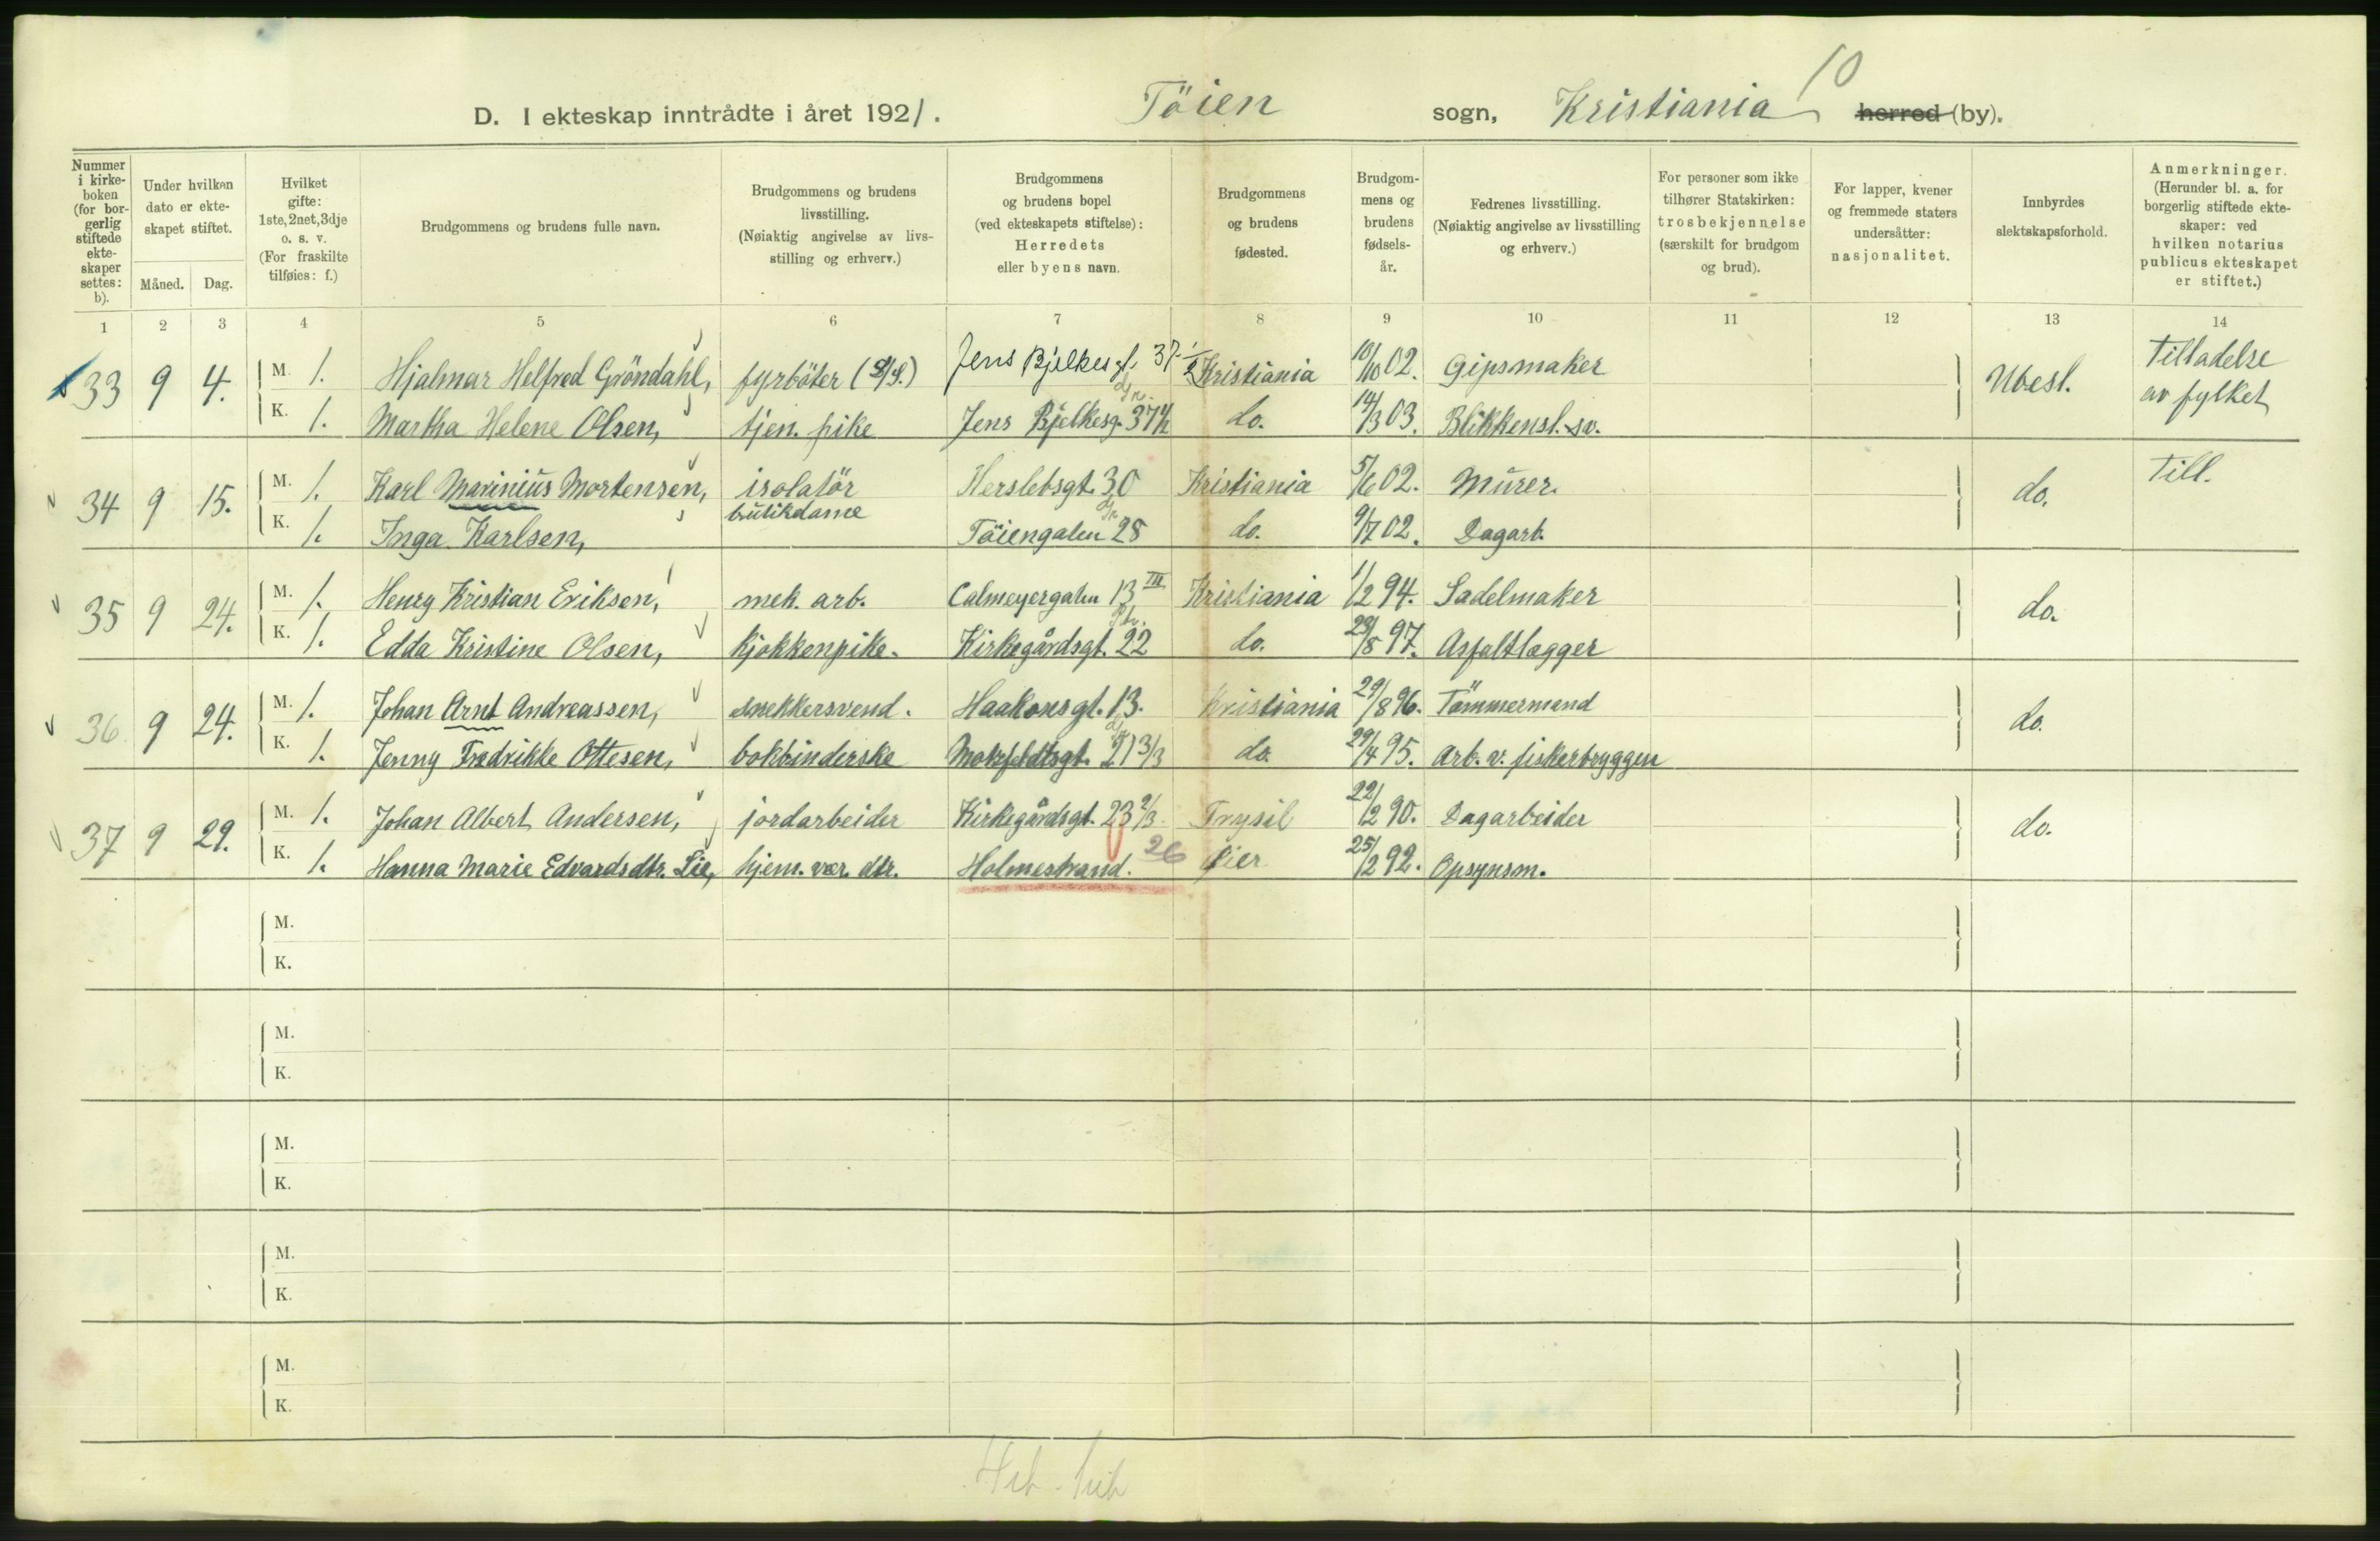 10
D. I ekteskap inntrådte i året 1921. Töien sogn, Kristiania herred (by).
Nummer i kirke-boken (for bor-gerlig stiftede ekte-skaper settes: b).
Under hvilken dato er ekte-skapet stiftet.
Måned. Dag.
Hvilket gifte: 1ste, 2net, 3dje o. s. v. (For fraskilte tilføies: f.)
Brudgommens og brudens fulle navn.
Brudgommens og brudens livsstilling. (Nøiaktig angivelse av livs-stilling og erhverv.)
Brudgommens og brudens bopel (ved ekteskapets stiftelse): Herredets eller byens navn.
Brudgommens og brudens fødested.
Brudgom-mens og brudens fødsels-år.
Fedrenes livsstilling. (Nøiaktig angivelse av livsstilling og erhverv.)
For personer som ikke tilhører Statskirken: trosbekjennelse (særskilt for brudgom og brud).
For lapper, kvener og fremmede staters undersåtter: nasjonalitet.
Innbyrdes slektskapsforhold.
Anmerkninger. (Herunder bl. a. for borgerlig stiftede ekte-skaper: ved hvilken notarius publicus ekteskapet er stiftet.)
1 2 3 4 5 6 7 8 9 10 11 12 13 14
33 9 4. M. 1. Hjalmar Helfred Gröndahl, fyrböter (S/S.) Jens Bjelkesgt. 37 1/2 Kristiania 10/10 02. Gipsmaker Ubesl. Tilladelse av fylket
K. 1. Martha Helene Olsen, tjen. pike Jens Bjelkesg. 37 1/2 do. 14/3 03. Blikkensl. sv.
34 9 15. M. 1. Karl Marinius Mortensen, isolatör Herslebsgt. 30 Kristiania 5/6 02. Murer. do. Till.
K. 1. Inga Karlsen, butikdame Töiengaten 28 do. 9/7 02. Dagarb.
35 9 24. M. 1. Henry Kristian Eriksen, mek. arb. Calmeyergaten 13 III Kristiania 1/2 94. Sadelmaker do.
K. 1. Edda Kristine Olsen, kjökkenpike. Kirkegårdsgt. 22 do. 23/8 97. Asfaltlægger
36 9 24. M. 1. Johan Arnt Andreassen, snekkersvend. Haakonsgt. 13. Kristiania 29/8 96. Tömmermand do.
K. 1. Jenny Fredrikke Ottesen, bokbinderske Motzfeldtsgt. 21 3/3 do. 29/4 95. Arb. v. fiskerbryggen
37 9 29. M. 1. Johan Albert Andersen, jordarbeider Kirkegårdsgt. 23 2/3. Trysil 22/12 90. Dagarbeider do.
K. 1. Hanna Marie Edvardsdtr. Lie, hjem. vær. dtr. Holmestrand. 26 Lier 25/2 92. Opsynsm.
M.
K.
M.
K.
M.
K.
M.
K.
M.
K.